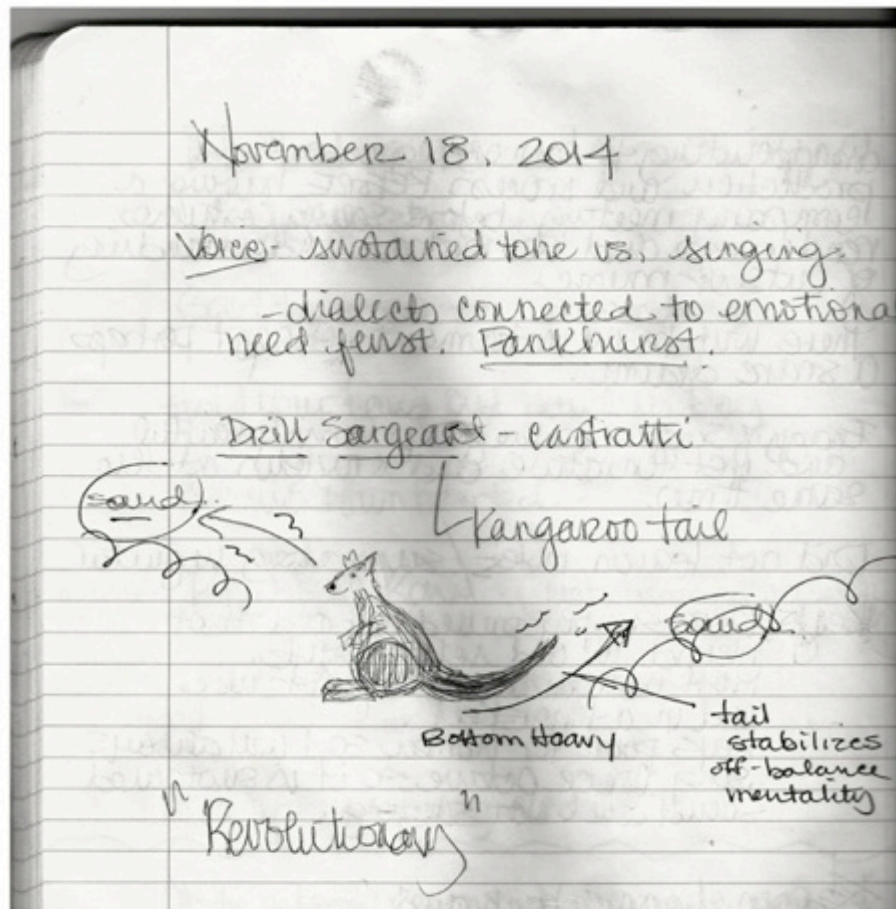 November 18, 2014
Voice - sustained tone vs. singing.
- dialects connected to emotional
need feurst. Pankhurst.
Drill Sargeant - castratti
sound...
Kangaroo tail
sound..
Bottom Heavy
tail
stabilizes
off-balance
mentality
"Revolutionary"